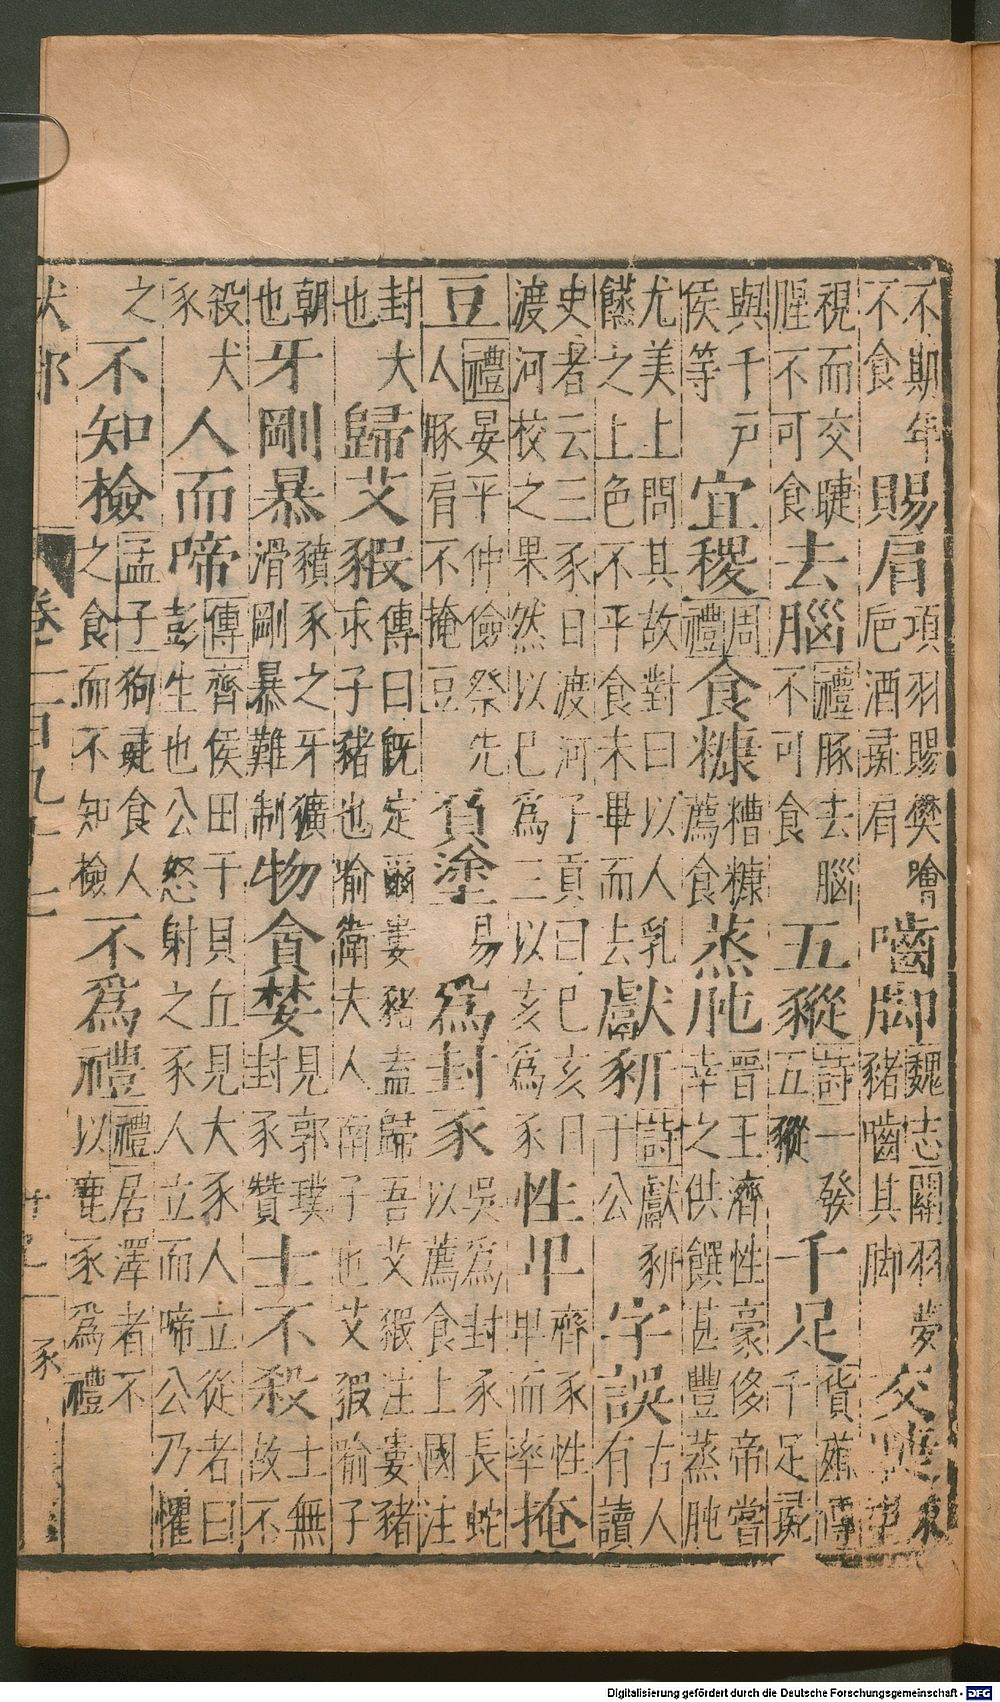 不期年不食賜肩項羽賜樊噲巵酒彘肩嚙脚魏志關羽夢豬嚙其脚交睫東
視而交睫腥不可食去腦禮豚去腦不可食五豵詩一發五豵千足貨殖傳千足彘
與千戶侯等宜稷周禮食糠糟糠薦食蒸肫晉王濟性豪侈帝嘗幸之供饌甚豐蒸肫
尤美上問其故對曰以人乳之上色不平食未畢而去獻豜詩獻豜于公字誤古人有讀
史者云三豕日渡河子貢曰巳亥日渡河校之果然以巳為三以亥為豕性卑齊豕性卑而率掩
豆禮晏平仲儉祭先人豚肩不掩豆負塗易為封豕吳為封豕長蛇以薦食上國注
封大也歸艾豭傳曰既定爾婁豬盍歸吾艾豭注婁豬求子豬也喻衛夫人南子也艾豭喻子
朝也牙剛暴豶豕之牙獷滑剛暴難制物貪婪見郭璞封豕贊士不殺士無故不
殺犬豕人而啼傳齊侯田于貝丘見大豕人立從者曰彭生也公怒射之豕人立而啼公乃懼
之不知檢孟子狗彘食人之食而不知檢不為禮禮居澤者不以鹿豕為禮
犬部 卷二百九十 豕
Digitalisierung gefördert durch die Deutsche Forschungsgemeinschaft - DFG